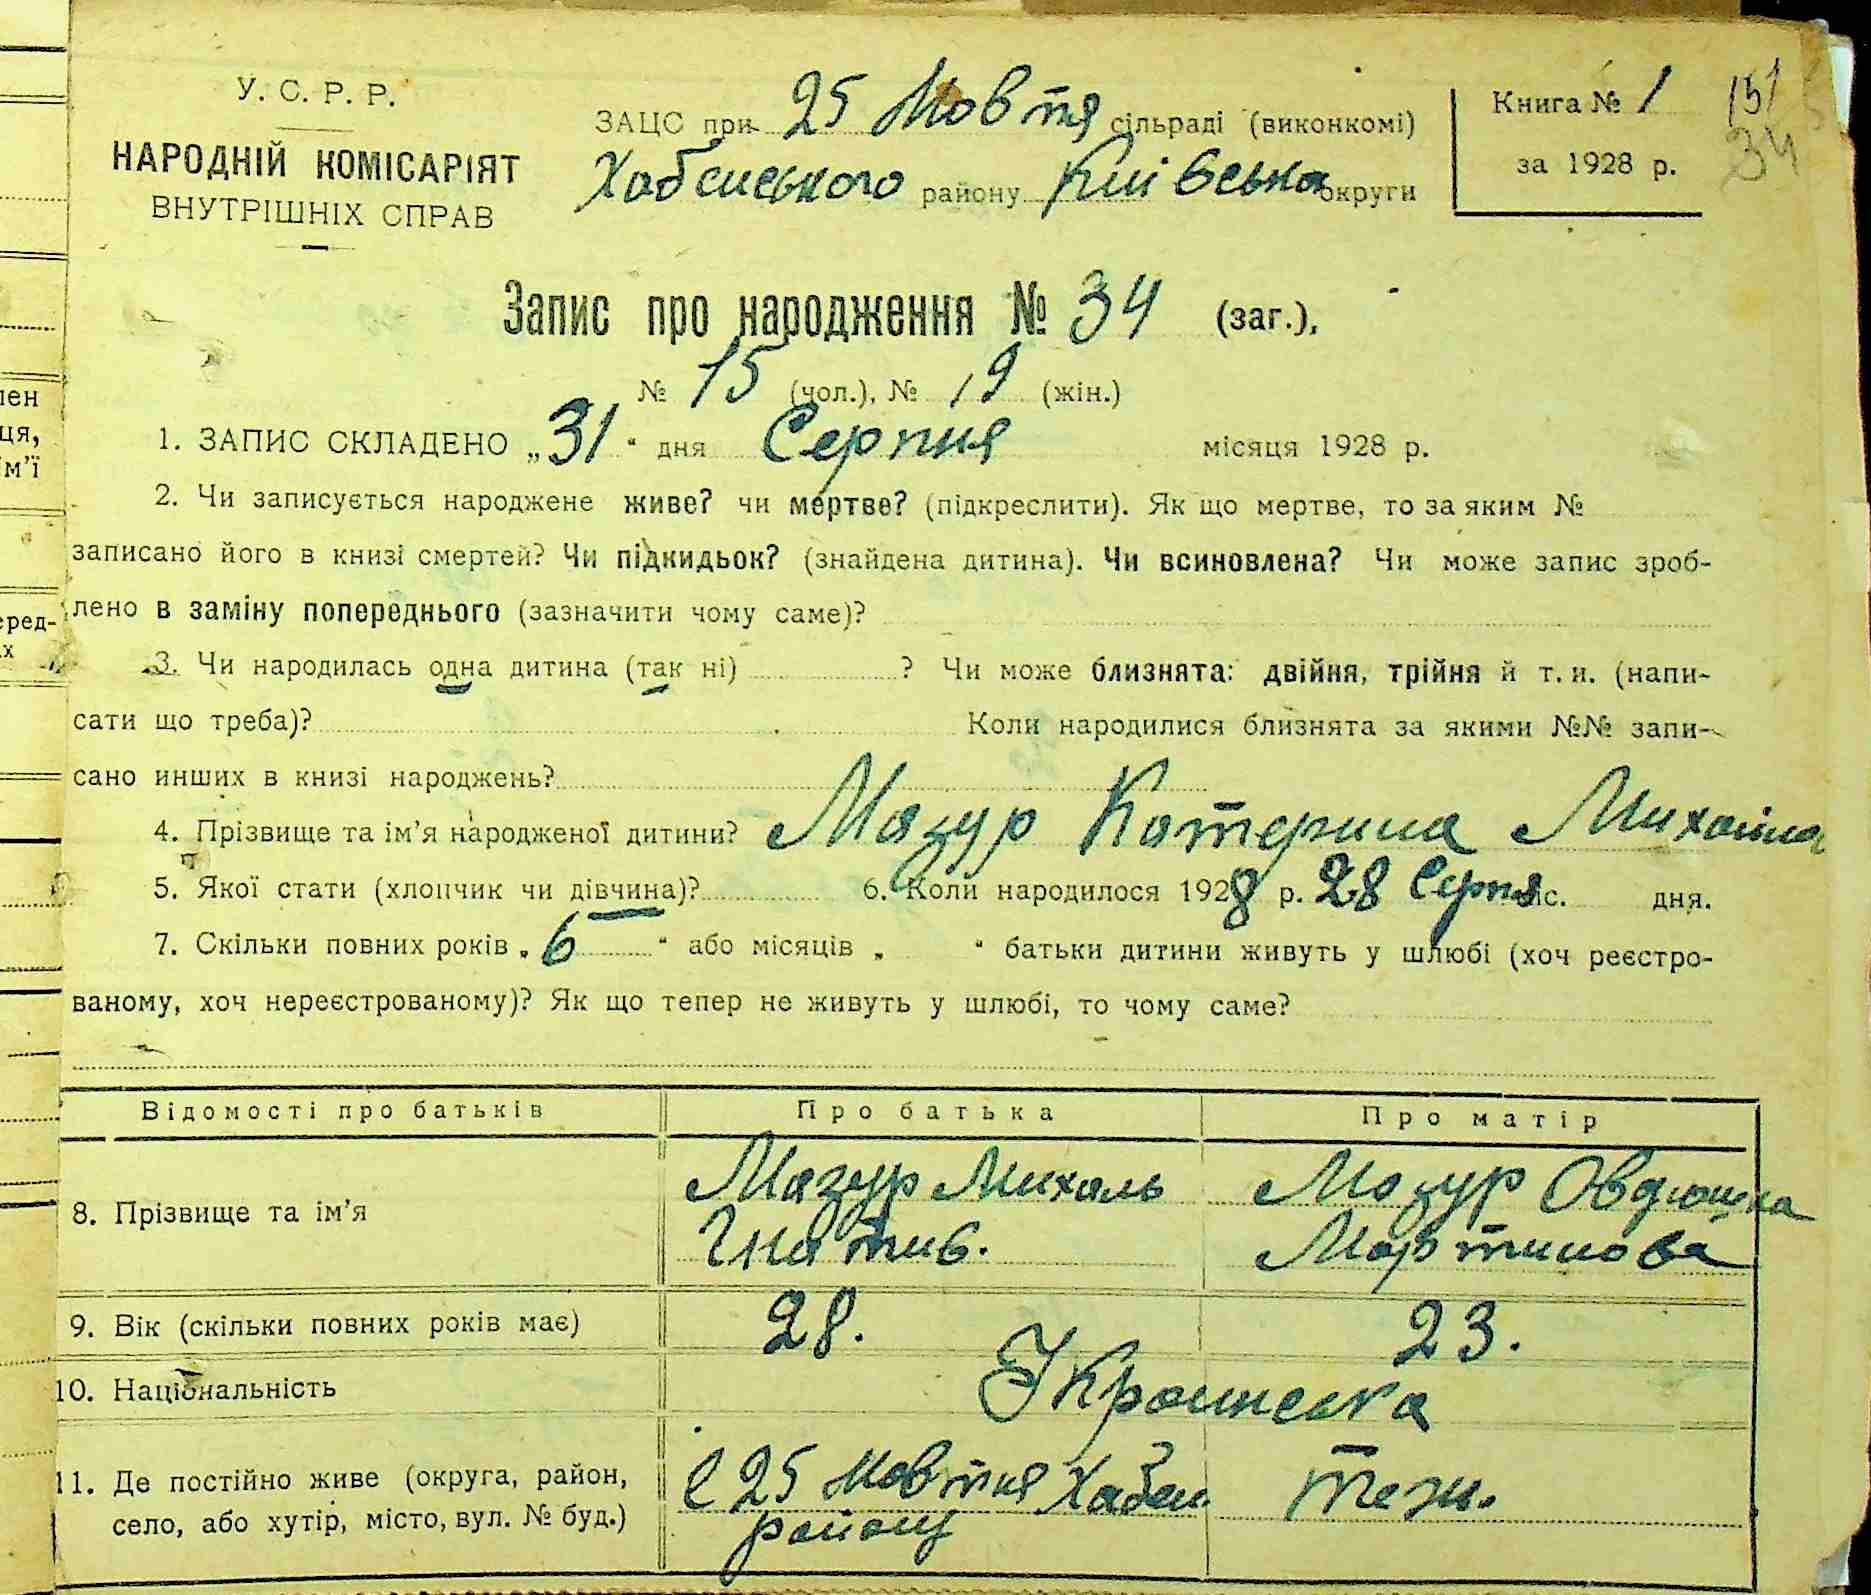 У. С. Р. Р.
НАРОДНІЙ КОМІСАРІЯТ
ВНУТРІШНІХ СПРАВ
ЗАЦС при 25 Жовтня сільраді (виконкомі)
Хабенського району Київська округи
Книга № 1
за 1928 р.
151
34
Запис про народження № 34 (заг.),
№ 15 (чол.), № 19 (жін.)
1. ЗАПИС СКЛАДЕНО „31“ дня Серпня місяця 1928 р.
2. Чи записується народжене живе? чи мертве? (підкреслити). Як що мертве, то за яким №
записано його в книзі смертей? Чи підкидьок? (знайдена дитина). Чи всиновлена? Чи може запис зроб-
лено в заміну попереднього (зазначити чому саме)?
3. Чи народилась одна дитина (так ні) ? Чи може близнята: двійня, трійня й т. и. (напи-
сати що треба)? Коли народилися близнята за якими №№ запи-
сано инших в книзі народжень?
4. Прізвище та ім’я народженої дитини? Мазур Катерина Михайла
5. Якої стати (хлопчик чи дівчина)? 6. Коли народилося 1928 р. 28 Серпня міс. дня.
7. Скільки повних років „6“ або місяців „ “ батьки дитини живуть у шлюбі (хоч реєстро-
ваному, хоч нереєстрованому)? Як що тепер не живуть у шлюбі, то чому саме?
Відомості про батьків Про батька Про матір
8. Прізвище та ім’я
Мазур Михаль
Гнатив.
Мазур Овдюшка
Мартинова
9. Вік (скільки повних років має) 28. 23.
10. Національність Украинська
11. Де постійно живе (округа, район,
село, або хутір, місто, вул. № буд.)
с 25 Жовтня Хабен.
району
теж.
лен
ця,
м’ї
еред-
х